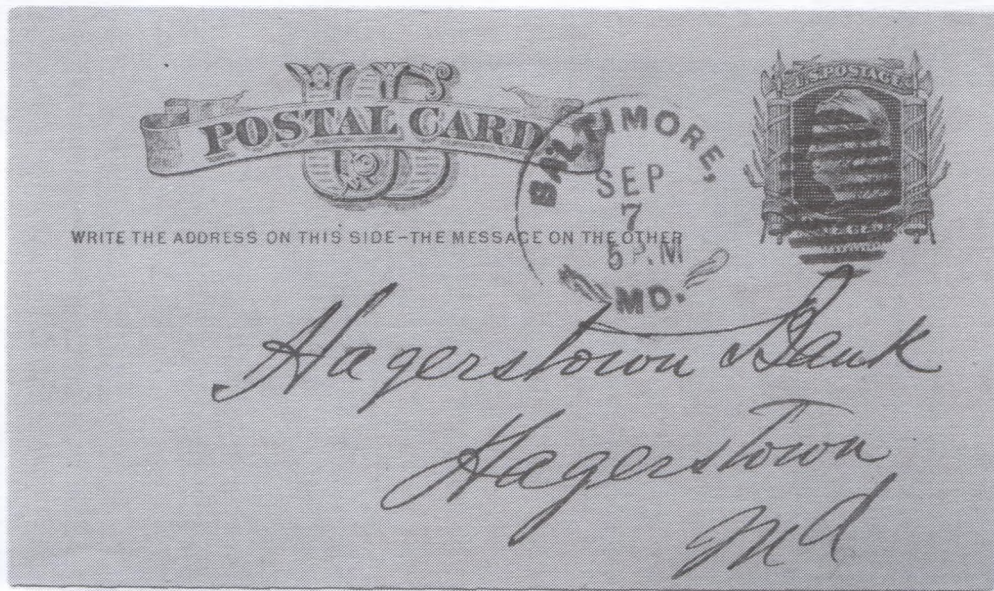 US
POSTAL CARD
WRITE THE ADDRESS ON THIS SIDE-THE MESSAGE ON THE OTHER
BALTIMORE,
SEP
7
5 P.M
MD.
U.S. POSTAGE
Hagerstown Bank
Hagerstown
Md